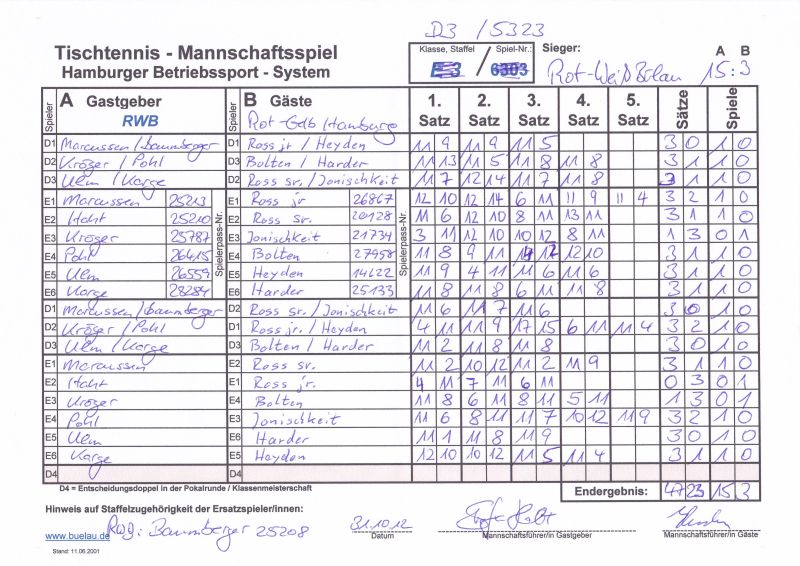 D3 / 5323
Tischtennis - Mannschaftsspiel
Hamburger Betriebssport - System
Klasse, Staffel Spiel-Nr.:
E3 / 6303
Sieger: A B
Rot-Weiß Bülau 15:3
Spieler A Gastgeber RWB Spieler B Gäste Rot-Gelb Hamburg 1. Satz 2. Satz 3. Satz 4. Satz 5. Satz Sätze Spiele
D1 Marcussen / Baumberger D1 Ross jr / Heyden 11 9 11 9 11 5 3 0 1 0
D2 Kröger / Pohl D3 Bolten / Harder 11 13 11 5 11 8 11 8 3 1 1 0
D3 Ulm / Karge D2 Ross sr. / Jonischkeit 11 7 12 14 11 7 11 8 3 1 1 0
E1 Marcussen 25213 E1 Ross jr 26867 12 10 12 14 6 11 11 9 11 4 3 2 1 0
E2 Hoht 25210 E2 Ross sr. 20128 11 6 12 10 8 11 13 11 3 1 1 0
E3 Kröger 25787 E3 Jonischkeit 21734 3 11 12 10 10 12 8 11 1 3 0 1
E4 Pohl 26415 E4 Bolten 27958 11 8 9 11 14 12 12 10 3 1 1 0
E5 Ulm 26559 E5 Heyden 14622 11 9 4 11 11 6 11 6 3 1 1 0
E6 Karge 28284 E6 Harder 25133 11 8 11 8 6 11 11 8 3 1 1 0
Spielerpass-Nr. Spielerpass-Nr.
D1 Marcussen / Baumberger D2 Ross sr. / Jonischkeit 11 6 11 7 11 6 3 0 1 0
D2 Kröger / Pohl D1 Ross jr. / Heyden 4 11 11 9 17 15 6 11 11 4 3 2 1 0
D3 Ulm / Karge D3 Bolten / Harder 11 2 11 8 11 8 3 0 1 0
E1 Marcussen E2 Ross sr. 11 2 10 12 11 2 11 9 3 1 1 0
E2 Hoht E1 Ross jr. 4 11 7 11 6 11 0 3 0 1
E3 Kröger E4 Bolten 11 8 6 11 8 11 5 11 1 3 0 1
E4 Pohl E3 Jonischkeit 11 6 8 11 11 7 10 12 11 9 3 2 1 0
E5 Ulm E6 Harder 11 1 11 8 11 9 3 0 1 0
E6 Karge E5 Heyden 12 10 10 12 11 5 11 4 3 1 1 0
D4 D4
D4 = Entscheidungsdoppel in der Pokalrunde / Klassenmeisterschaft
Endergebnis: 47 23 15 3
Hinweis auf Staffelzugehörigkeit der Ersatzspieler/innen:
www.buelau.de RWB: Baumberger 25208 31.10.12
Datum Mannschaftsführer/in Gastgeber Mannschaftsführer/in Gäste
Stand: 11.06.2001